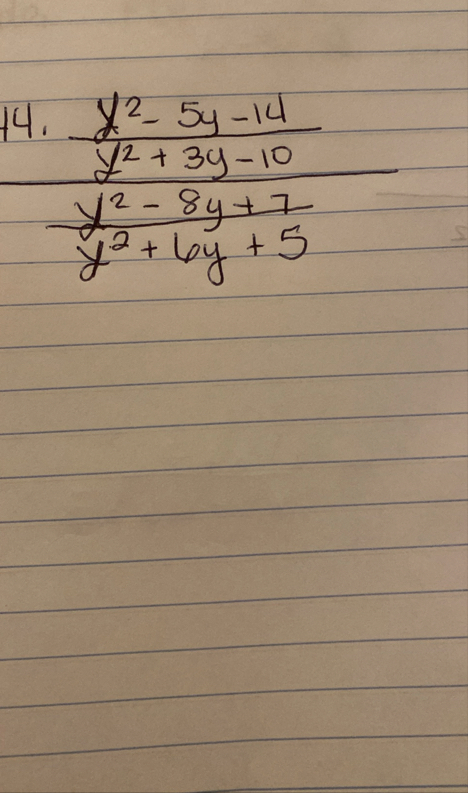 44. y² - 5y - 14
y² + 3y - 10
y² - 8y + 7
y² + 6y + 5